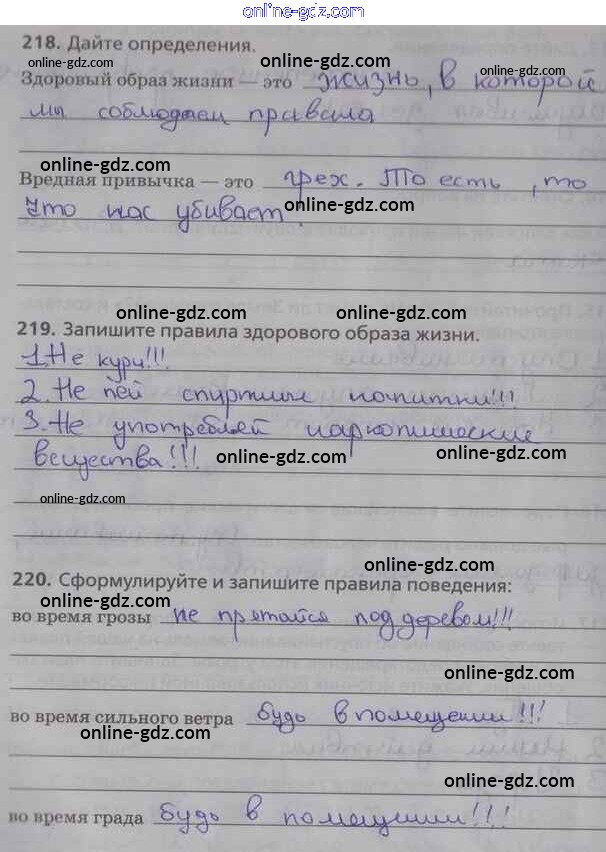 online-gdz.com
218. Дайте определения.
online-gdz.com online-gdz.com
Здоровый образ жизни — это жизнь, в которой
мы соблюдаем правила
online-gdz.com
online-gdz.com
Вредная привычка — это грех. То есть, то
что нас убивает.
online-gdz.com online-gdz.com
online-gdz.com
219. Запишите правила здорового образа жизни.
1. Не кури!!!
online-gdz.com
online-gdz.com
2. Не пей спиртные напитки!!!
3. Не употребляй наркотические
вещества!!!
online-gdz.com
online-gdz.com
online-gdz.com
220. Сформулируйте и запишите правила поведения:
online-gdz.com
во время грозы не прятайся под деревом!!!
online-gdz.com
во время сильного ветра будь в помещении!!!
online-gdz.com
online-gdz.com
во время града будь в помещении!!!